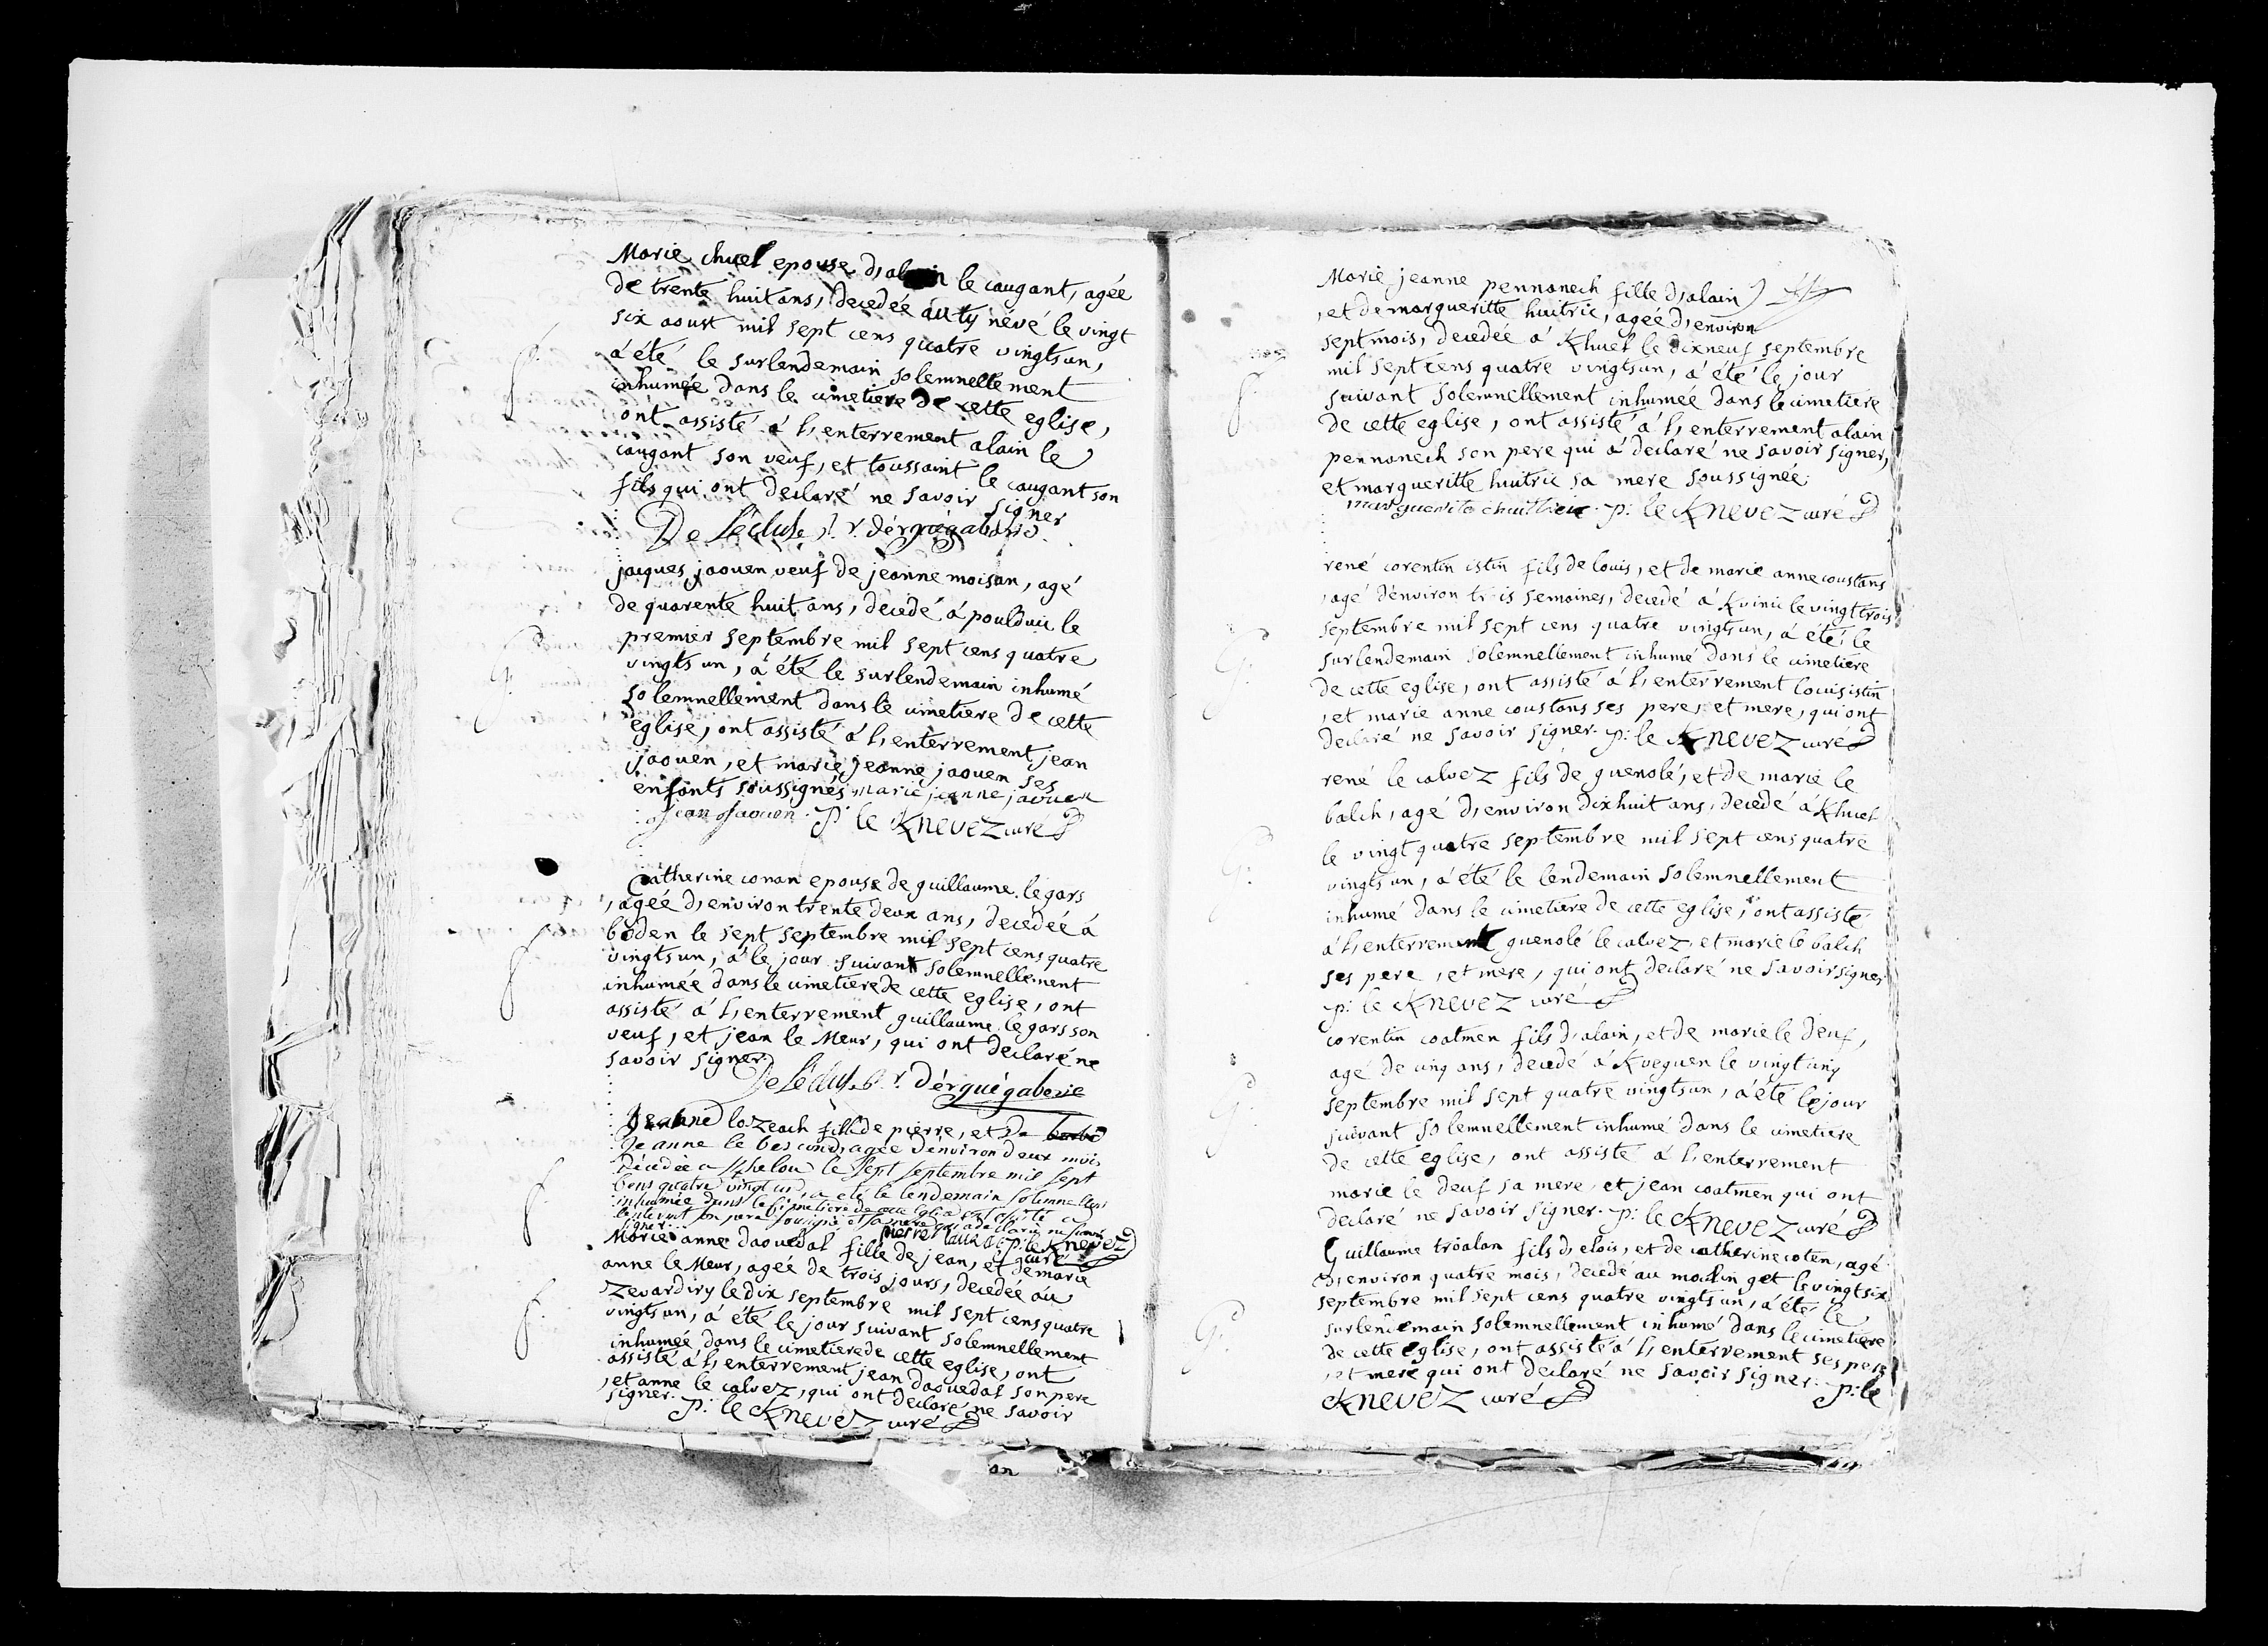 Marie huel epouse d'alain le caugant, agée
de trente huit ans, decedée au ty névé le vingt
six aoust mil sept cens quatre vingts un,
f.
á été le surlendemain solemnellement
inhumée dans le cimetiere de cette eglise,
ont assisté á l'enterrement alain le
caugant son veuf, et toussaint le caugant son
fils qui ont declaré ne savoir signer
De Lécluse r. dérguégaberie
jacques jaouen veuf de jeanne moisan, agé
de quarente huit ans, decedé á poulduic le
premier septembre mil sept cens quatre
G.
vingts un, á été le surlendemain inhumé
solemnellement dans le cimetiere de cette
eglise, ont assisté á l'enterrement jean
jaouen, et marie jeanne jaouen ses
enfants soussignés marie jeanne jaouen
Jean Jaouen. p: le Knevez curé
Catherine conan epouse de guillaume le gars
, agée d'environ trente deux ans, decedée á
boden le sept septembre mil sept cens quatre
f.
vingts un, á le jour suivant solemnellement
inhumée dans le cimetiere de cette eglise, ont
assisté á l'enterrement guillaume le gars son
veuf, et jean le Meur, qui ont declaré ne
savoir signer.
De Lécluse r. dérguégaberie
Jeanne lozeach fille de pierre, et de barbe
Jeanne le bescond, agée d'environ deux mois
Décédée a le sept septembre mil sept
f.
Cens quatre vingt un, a été le lendemain solemnellem
inhumée dans le Cimetiere de cette Eglise ont assisté a
son pere soussigné et sa mere qui a declaré ne savoir
signer. pierre p: le Knevez
curé
Marie anne daouedal fille de jean, et de marie
anne le Meur, agée de trois jours, decedée au
zevardiry le dix septembre mil sept cens quatre
f.
vingts un, á été le jour suivant solemnellement
inhumée dans le cimetiere de cette eglise, ont
assisté á l'enterrement jean daouedal son pere
, et anne le calvez, qui ont declaré ne savoir
signer. p: le Knevez curé
Marie jeanne pennanech fille d'alain
, et de margueritte huitric, agée d'environ
sept mois, decedée á Khuel le dixneuf septembre
f.
mil sept cens quatre vingts un, á été le jour
suivant solemnellement inhumée dans le cimetiere
de cette eglise, ont assisté á l'enterrement alain
pennanech son pere qui á declaré ne savoir signer,
et margueritte huitric sa mere soussignée.
marguerite p: le Knevez curé
rené corentin istin fils de louis, et de marie anne coustans
, agé d'environ trois semaines, decedé á Kvinic le vingt trois
septembre mil sept cens quatre vingts un, á été le
G.
surlendemain solemnellement inhumé dans le cimetiere
de cette eglise, ont assisté á l'enterrement louis istin
, et marie anne coustans ses pere, et mere, qui ont
declaré ne savoir signer. p: le Knevez curé
rené le calvez fils de guenolé, et de marie le
balch, agé d'environ dix huit ans, decedé á Khuel
le vingt quatre septembre mil sept cens quatre
G.
vingts un, á été le lendemain solemnellement
inhumé dans le cimetiere de cette eglise, ont assisté
á l'enterrement guenolé le calvez, et marie le balch
ses pere, et mere, qui ont declaré ne savoir signer
p: le Knevez curé
corentin coatmen fils d'alain, et de marie le deuf,
agé de cinq ans, decedé á Kveguen le vingt cinq
septembre mil sept quatre vingts un, á été le jour
G.
suivant solemnellement inhumé dans le cimetiere
de cette eglise, ont assisté á l'enterrement
marie le deuf sa mere, et jean coatmen qui ont
declaré ne savoir signer. p: le Knevez curé
Guillaume tróalan fils d'elois, et de catherine coten, agé
d'environ quatre mois, decedé au moulin get le vingt six
septembre mil sept cens quatre vingts un, á été le
G.
surlendemain solemnellement inhumé dans le cimetiere
de cette eglise, ont assisté á l'enterrement ses pere
, et mere qui ont declaré ne savoir signer. p: le
Knevez curé